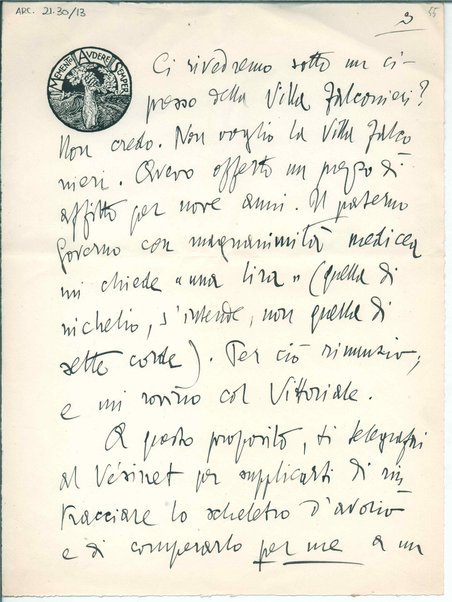 ARC. 21.30/13
3
55
MEMENTO AUDERE SEMPER
Ci rivedremo sotto un ci-
presso della Villa Falconieri?
Non credo. Non voglio la Villa Falco
nieri. Avevo offerto un prezzo di
affitto per nove anni. Il paterno
Governo con magnanimità medicea
mi chiede "una lira" (quella di
nichelio, s'intende, non quella di
sette corde). Per ciò rinunzio;
e mi rovino col Vittoriale.
A questo proposito, ti telegrafai
al Vésinet per supplicarti di rin
tracciare lo scheletro d'avorio
e di comperarlo per me a un